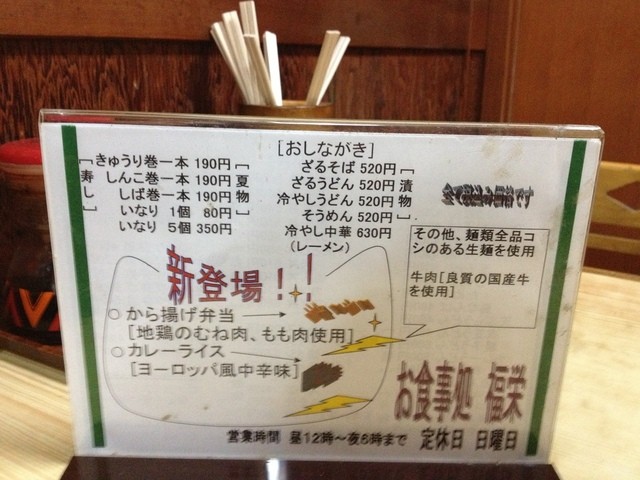 [おしながき]
[寿し]
きゅうり巻一本 190円
しんこ巻一本 190円
しば巻一本 190円
いなり 1個 80円
いなり 5個 350円
[夏物]
ざるそば 520円
ざるうどん 520円
冷やしうどん 520円
そうめん 520円
冷やし中華 630円
(レーメン)
[漬物]
全て税込み価格です
その他、麺類全品コ
シのある生麺を使用
牛肉[良質の国産牛
を使用]
新登場!!
○から揚げ弁当
[地鶏のむね肉、もも肉使用]
○カレーライス
[ヨーロッパ風中辛味]
お食事処 福栄
営業時間 昼12時～夜6時まで 定休日 日曜日